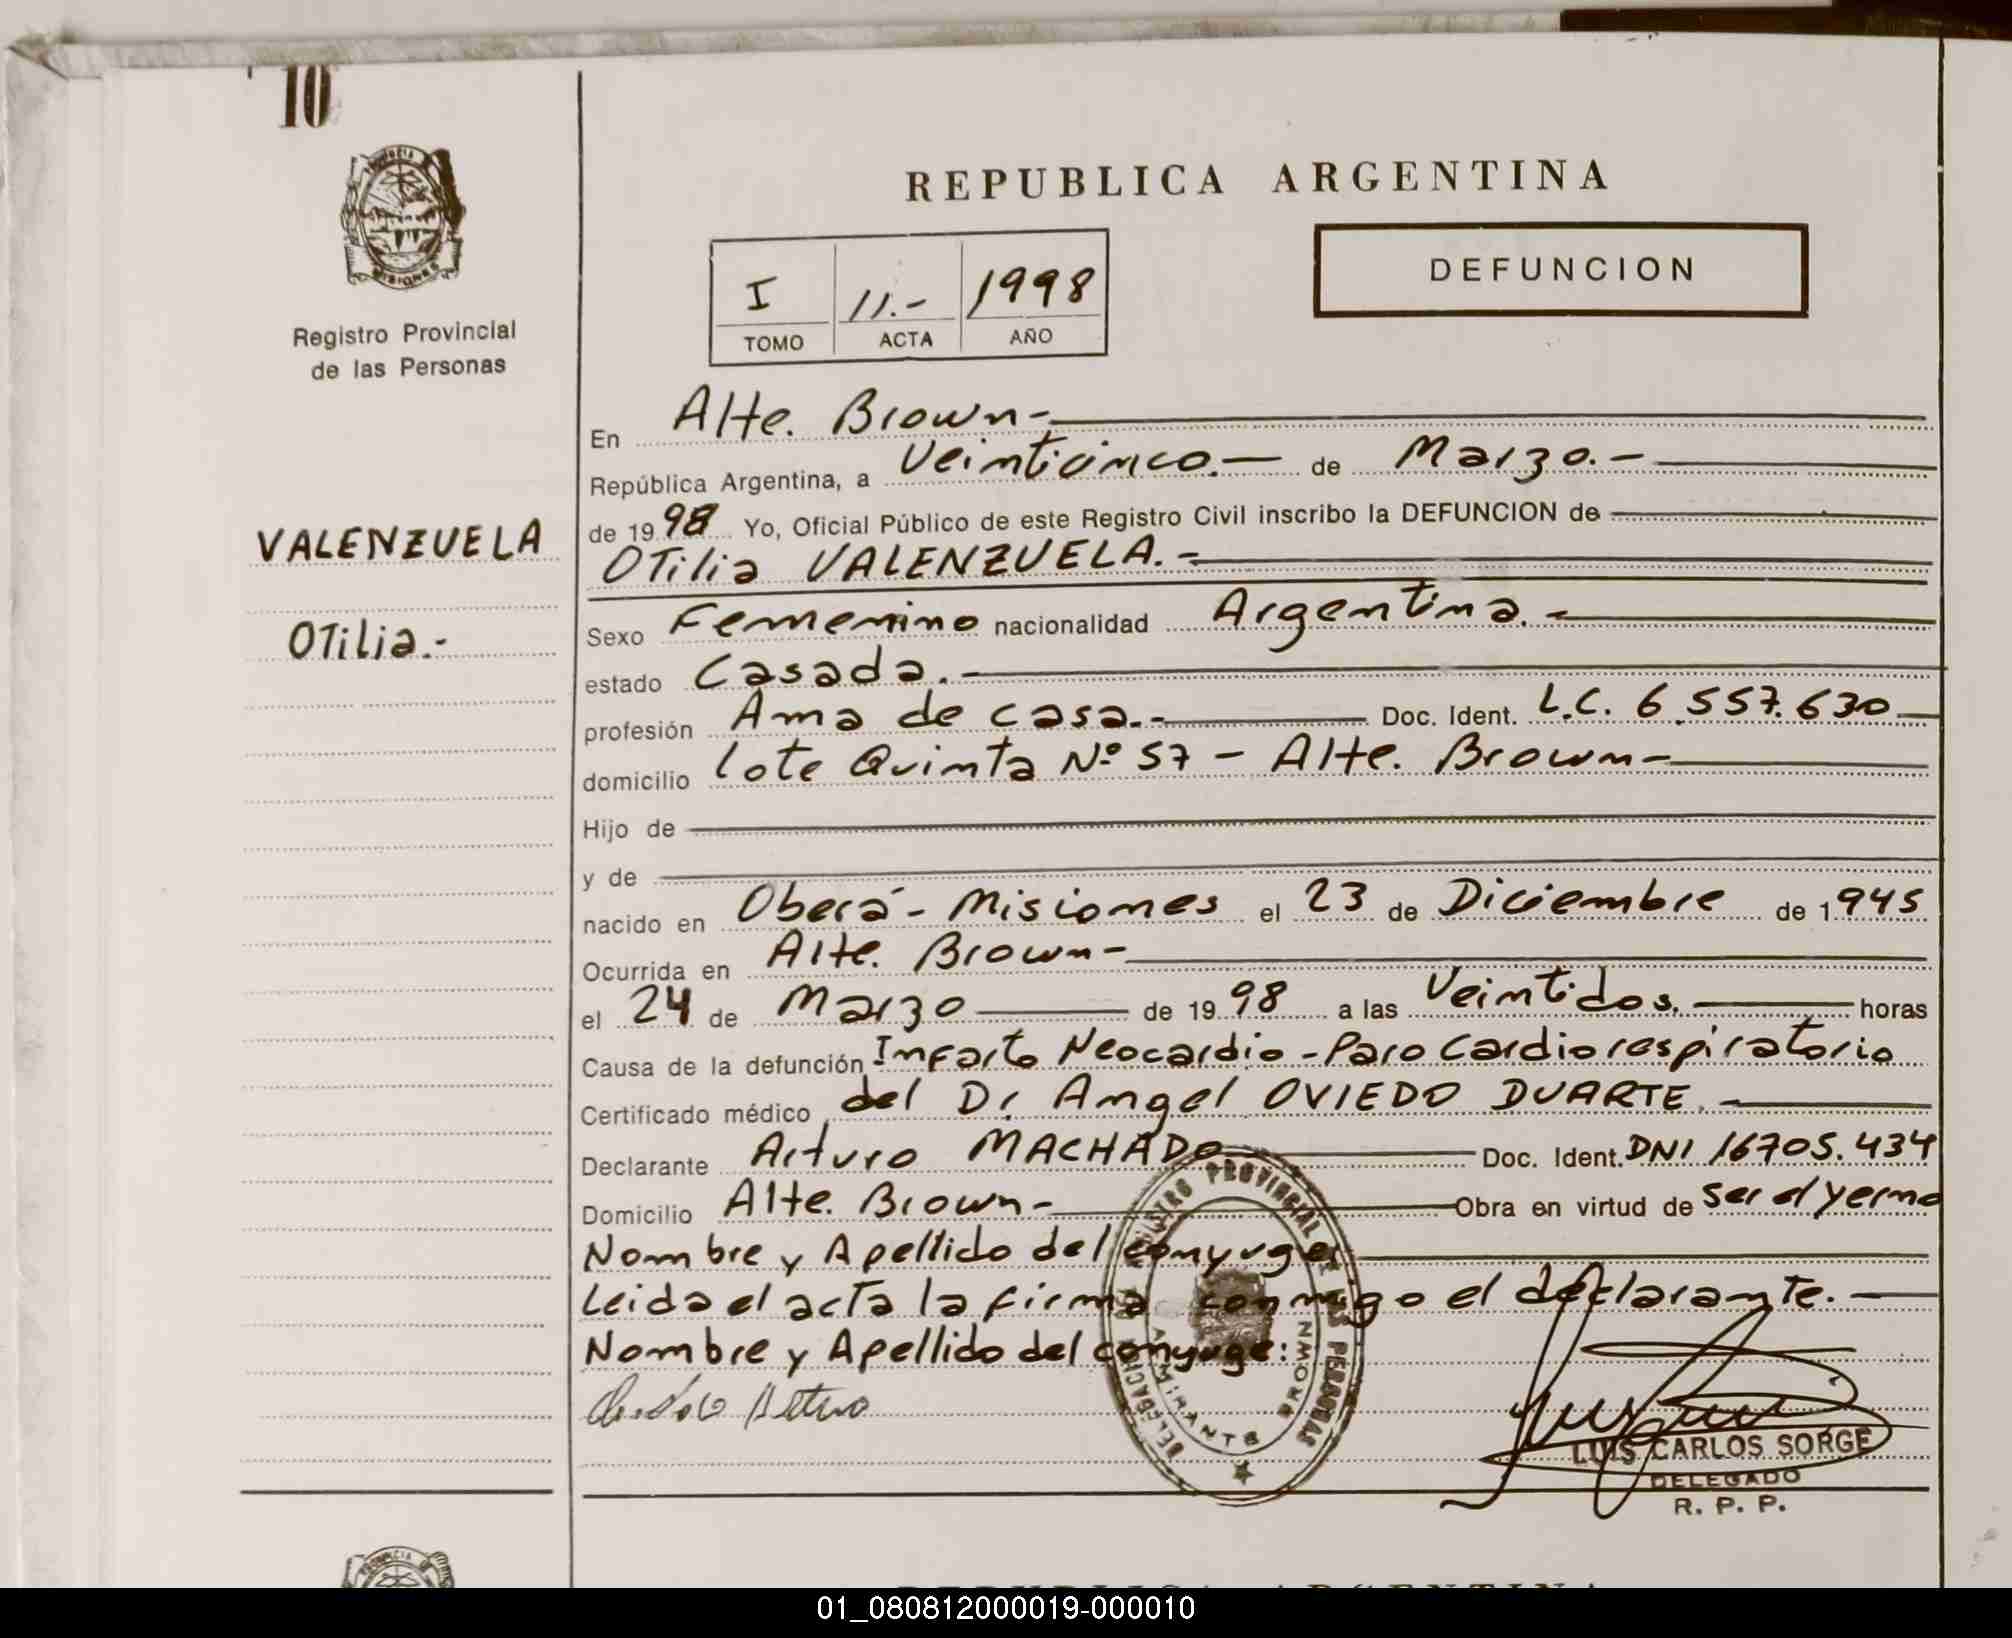 10
PROVINCIA DE
MISIONES
Registro Provincial
de las Personas
VALENZUELA
OTilia.-
REPUBLICA ARGENTINA
I 11.- 1998
TOMO ACTA AÑO
DEFUNCION
En Alte. Brown-
República Argentina, a Veinticinco.- de Marzo.-
de 1998 Yo, Oficial Público de este Registro Civil inscribo la DEFUNCION de
OTilia VALENZUELA.-
Sexo Femenino nacionalidad Argentina.-
estado Casada.-
profesión Ama de casa.- Doc. Ident. L.C. 6.557.630
domicilio lote Quinta Nº 57 - Alte. Brown-
Hijo de
y de
nacido en Oberá - Misiones el 23 de Diciembre de 1945
Ocurrida en Alte. Brown-
el 24 de Marzo de 1998 a las Veintidos. horas
Causa de la defunción Infarto Neocardio - Paro Cardiorespiratorio
Certificado médico del Dr Angel OVIEDO DUARTE.-
Declarante Arturo MACHADO Doc. Ident. DNI 16705.434
Domicilio Alte. Brown- Obra en virtud de ser el yerno
Nombre y Apellido del conyuge:
Leida el acta la firma conmigo el declarante.-
Nombre y Apellido del conyuge:
Arturo
REGISTRO PROVINCIAL DE LAS PERSONAS
DELEGACION
ALMIRANTE BROWN
LUIS CARLOS SORGE
DELEGADO
R. P. P.
REPUBLICA ARGENTINA
01_080812000019-000010